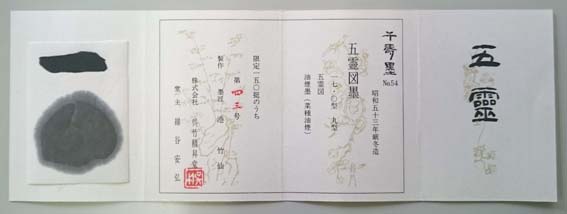 五靈
千壽墨
No.54
昭和五十三年厳冬造
五霊図墨
一七・〇型 丸型
五霊図
油煙墨(菜種油煙)
限定一五〇挺のうち
第四三号
製作 墨匠 港 竹仙
株式会社 呉竹精昇堂
堂主 綿谷安弘